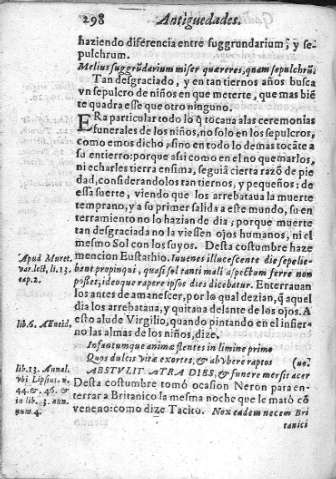 298 Antiguedades.
haziendo diferencia entre suggrundarium, y se-
pulchrum.
Melius suggrũdarium miser quæreres, quam sepulchrũ.
Tan desgraciado, y en tan tiernos años busca
vn sepulcro de niños en que meterte, que mas biẽ
te quadra esse que otro ninguno.
ERa particular todo lo q̃ tocana a las ceremonias
funerales de los niños, no solo en los sepulcros,
como emos dicho, sino en todo lo demas tocãte a
su entierro: porque assi como en el no quemarlos,
ni echarles tierra ensima, seguiã cierta razõ de pie
dad, considerandolos tan tiernos, y pequeños: de
essa suerte, viendo que los arrebataua la muerte
temprano, y a su primer salida a este mundo, su en
terramiento no lo hazian de dia; porque muerte
tan desgraciada no la viessen ojos humanos, ni el
mesmo Sol con los suyos. Desta costumbre haze
mencion Eustathio. Iuuenes illucescente die sepelie-
Apud Muret.
var. lect. li. 13.
cap. 2.
bant propinqui, quasi sol tanti mali aspectum ferre non
posset, ideoque rapere ipsos dies dicebatur. Enterrauan
los antes de amanecer, por lo qual dezian, q̃ aquel
dia los arrebataua, y quitaua delante de los ojos. A
lib. 6. Æneid.
esto alude Virgilio, quando pintando en el infier-
no las almas de los niños, dize.
Infantumque animæ flentes in limine primo
Quos dulcis vitæ exortes, & ab vbere raptos (uo:
lib. 13. Annal.
Vbi Lipsius. n.
44. & 46. &
in lib. 3. num.
num 4.
ABSTVLIT ATRA DIES, & funere mersit acer
Desta costumbre tomó ocasion Neron para en-
terrar a Britanico la mesma noche que le mató cõ
veneno: como dize Tacito. Nox eadem necem Bri
tanici